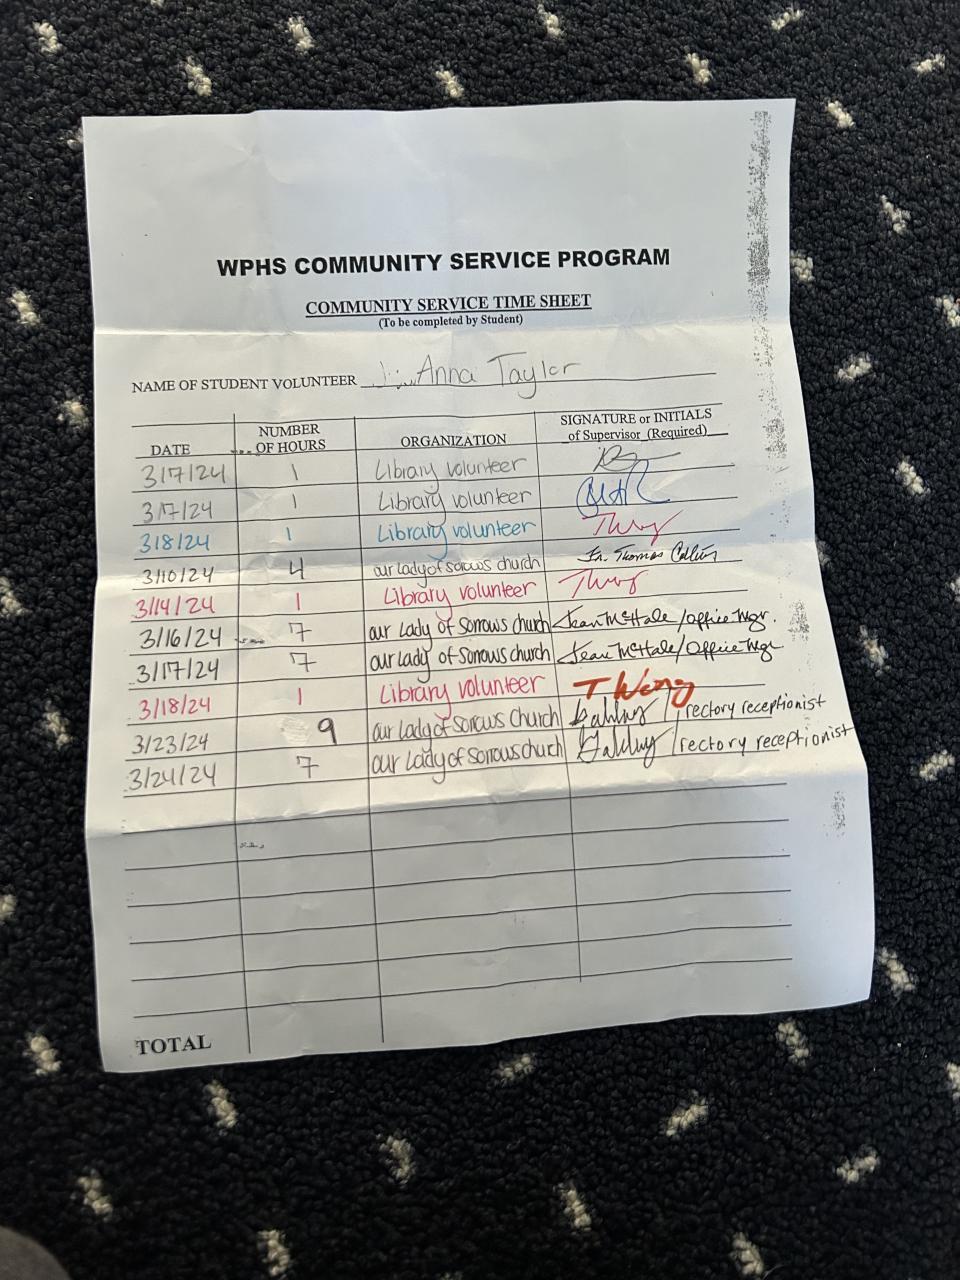 WPHS COMMUNITY SERVICE PROGRAM
COMMUNITY SERVICE TIME SHEET
(To be completed by Student)
NAME OF STUDENT VOLUNTEER Anna Taylor
DATE NUMBER OF HOURS ORGANIZATION SIGNATURE or INITIALS of Supervisor (Required)
3/7/24 1 Library volunteer
3/7/24 1 Library volunteer
3/8/24 1 Library volunteer
3/10/24 4 our lady of sorrows church Fr. Thomas
3/14/24 1 Library volunteer
3/16/24 7 our Lady of Sorrows church Jean McHale/Office Mgr.
3/17/24 7 our Lady of Sorrows church Jean McHale/Office Mgr
3/18/24 1 Library volunteer T Wong
3/23/24 9 our Lady of Sorrows church / rectory receptionist
3/24/24 7 our Lady of Sorrows church / rectory receptionist
TOTAL